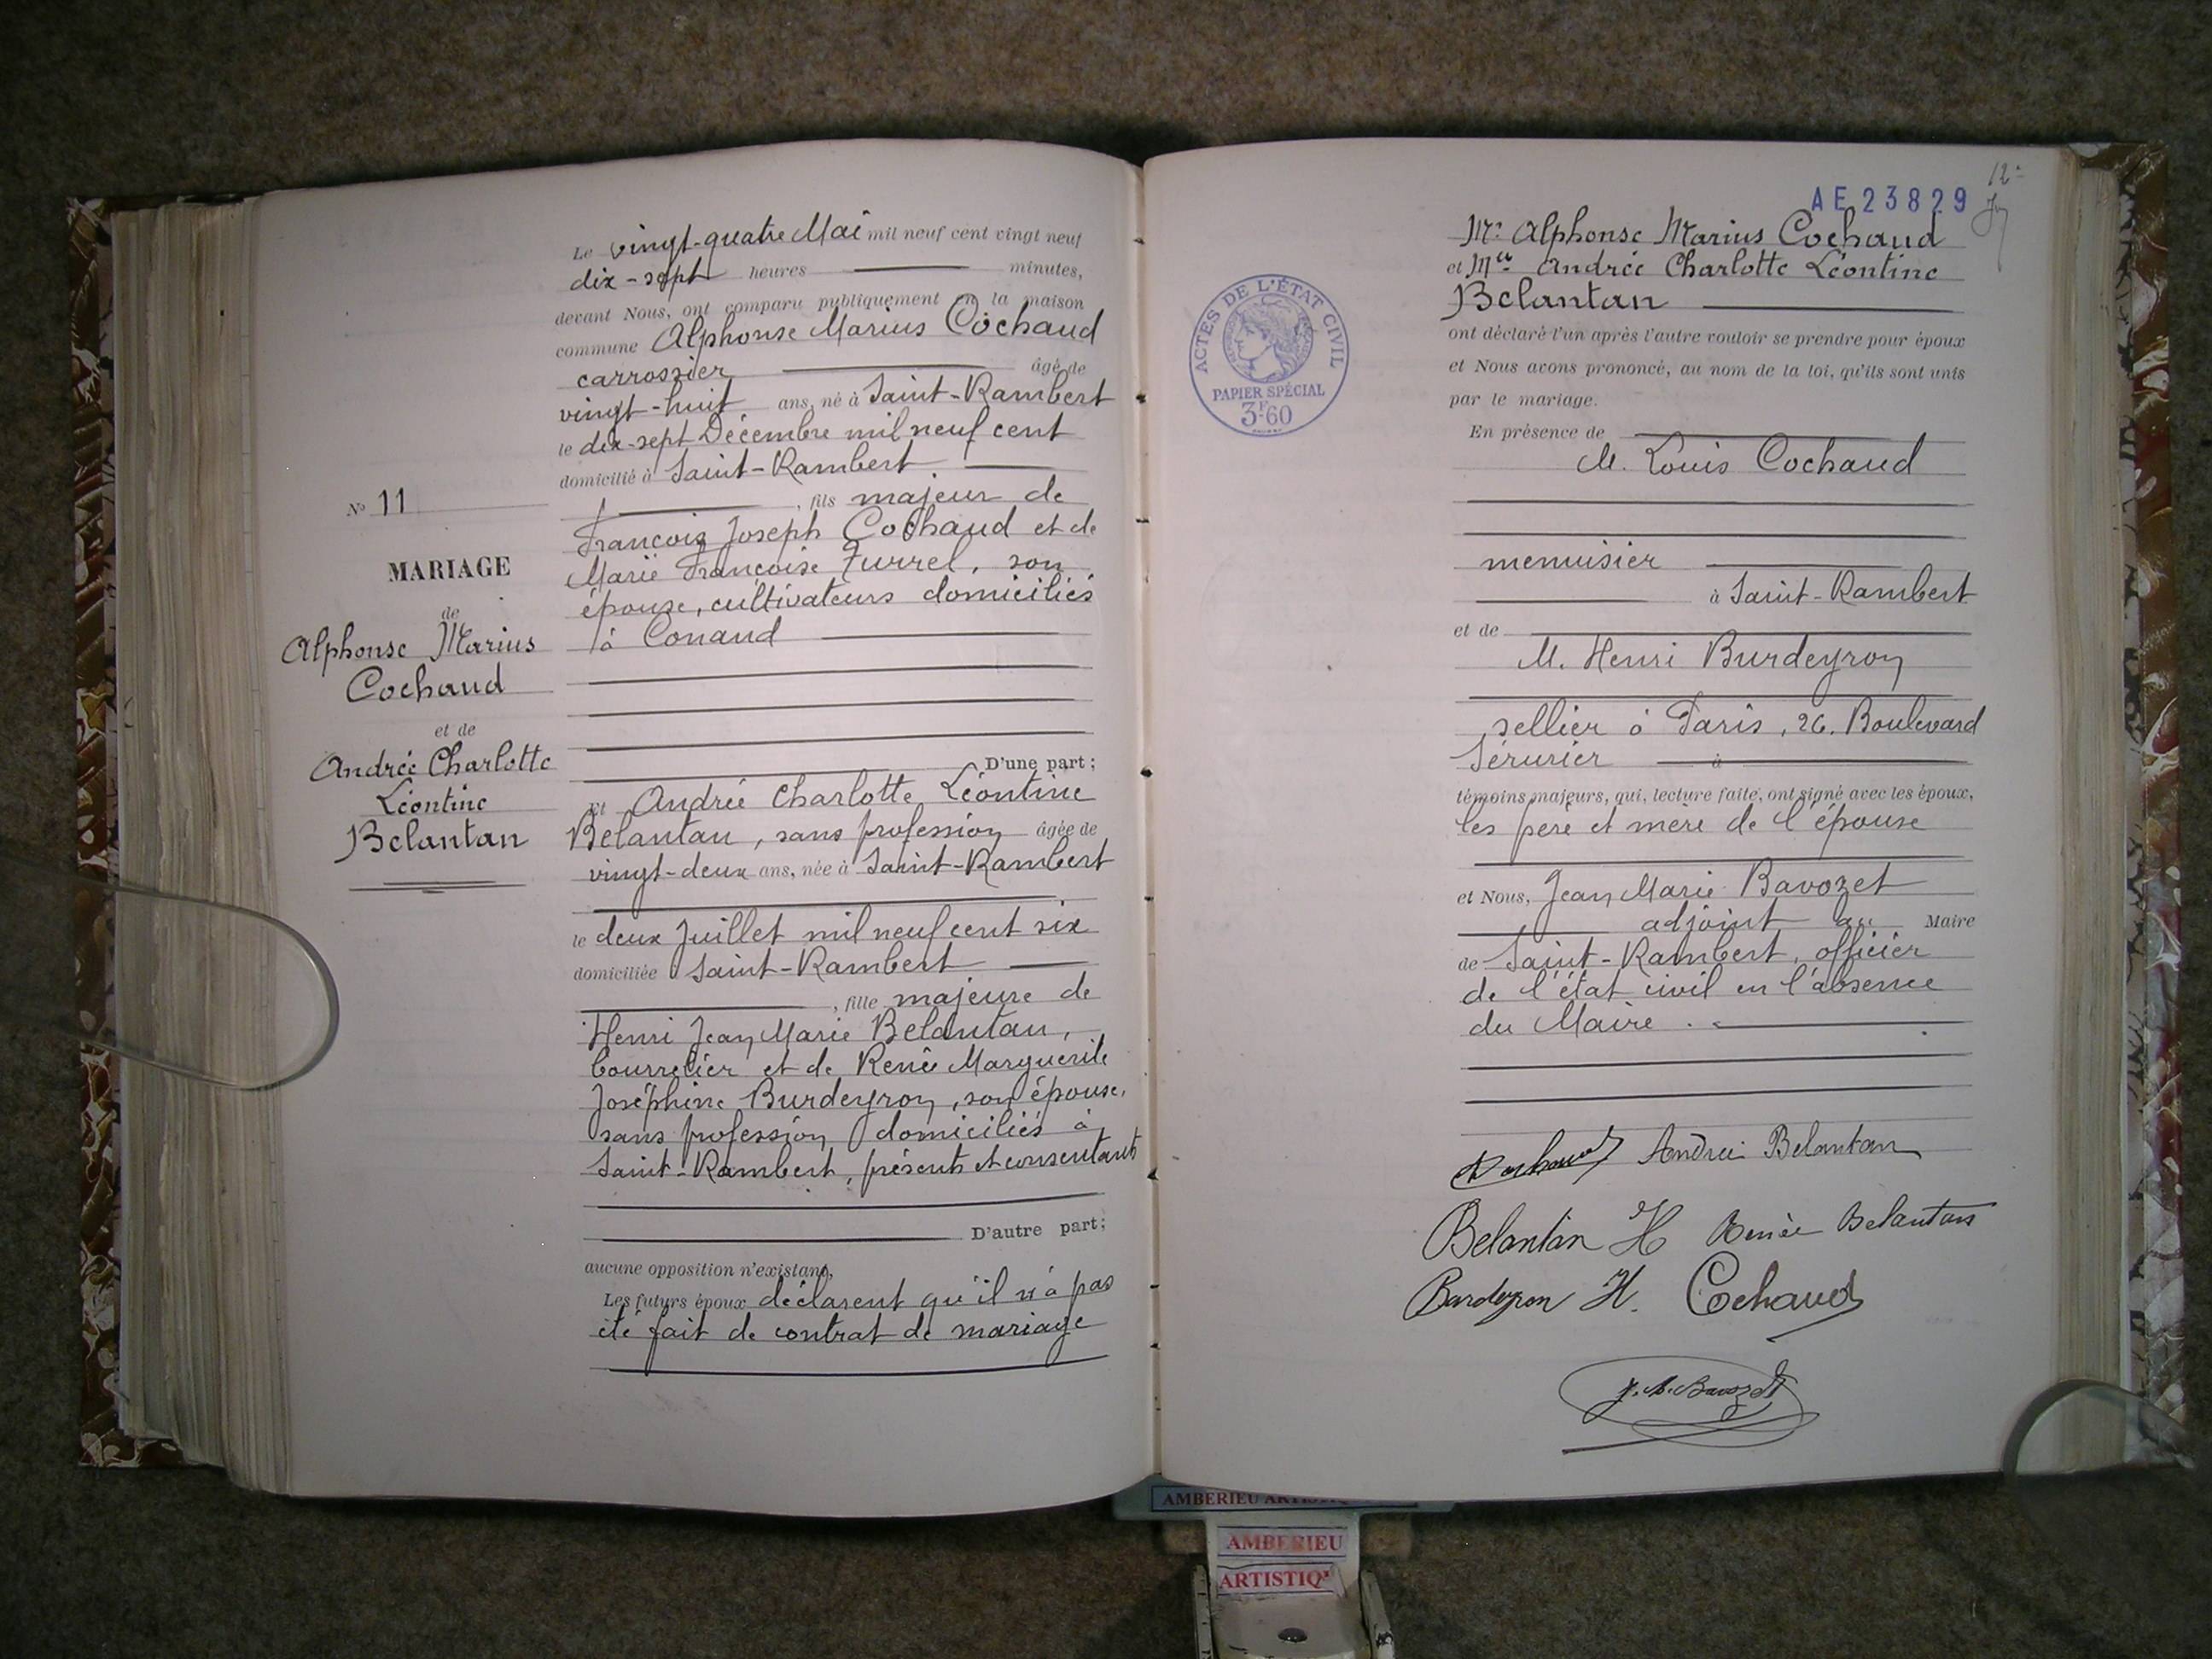 Le vingt-quatre Mai mil neuf cent vingt neuf
dix-sept heures minutes,
devant Nous, ont comparu publiquement en la maison
commune Alphonse Marius Cochaud
carrossier âgé de
vingt-huit ans, né à Saint-Rambert
le dix-sept Décembre mil neuf cent
domicilié à Saint-Rambert
, fils majeur de
François Joseph Cochaud et de
Marie Françoise Furrel, son
épouse, cultivateurs domiciliés
à Conand
D'une part;
Et Andrée Charlotte Léontine
Belantan, sans profession âgée de
vingt-deux ans, née à Saint-Rambert
le deux Juillet mil neuf cent six
domiciliée Saint-Rambert
, fille majeure de
Henri Jean Marie Belantan,
bourrelier et de Renée Marguerite
Joséphine Burdeyron, son épouse,
sans profession domiciliés à
Saint-Rambert, présents et consentants
D'autre part;
aucune opposition n'existant,
Les futurs époux déclarent qu'il n'a pas
été fait de contrat de mariage
No 11
MARIAGE
de
Alphonse Marius
Cochaud
et de
Andrée Charlotte
Léontine
Belantan
12
AE 23829
Mr Alphonse Marius Cochaud
et Mlle Andrée Charlotte Léontine
Belantan
ont déclaré l'un après l'autre vouloir se prendre pour époux
et Nous avons prononcé, au nom de la loi, qu'ils sont unis
par le mariage.
En présence de
M. Louis Cochaud
menuisier
à Saint-Rambert
et de
M. Henri Burdeyron
sellier à Paris, 26. Boulevard
Sérurier à
témoins majeurs, qui, lecture faite, ont signé avec les époux,
les père et mère de l'épouse
et Nous, Jean Marie Bavozet
adjoint au Maire
de Saint-Rambert, officier
de l'état civil en l'absence
du Maire.
ACTES DE L'ÉTAT CIVIL
PAPIER SPÉCIAL
3F60
Cochaud Andrée Belantan
Belantan H Renée Belantan
Burdeyron H. Cochaud
J. M. Bavozet
AMBERIEU
AMBERIEU
ARTISTIQ